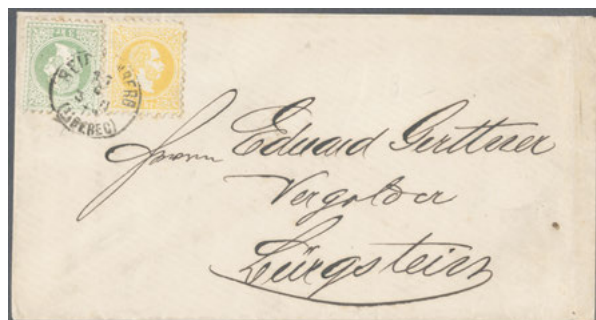 REICHENBERG
(LIBEREC)
Herrn Eduard Gerttner
Vergolder
Bürgstein